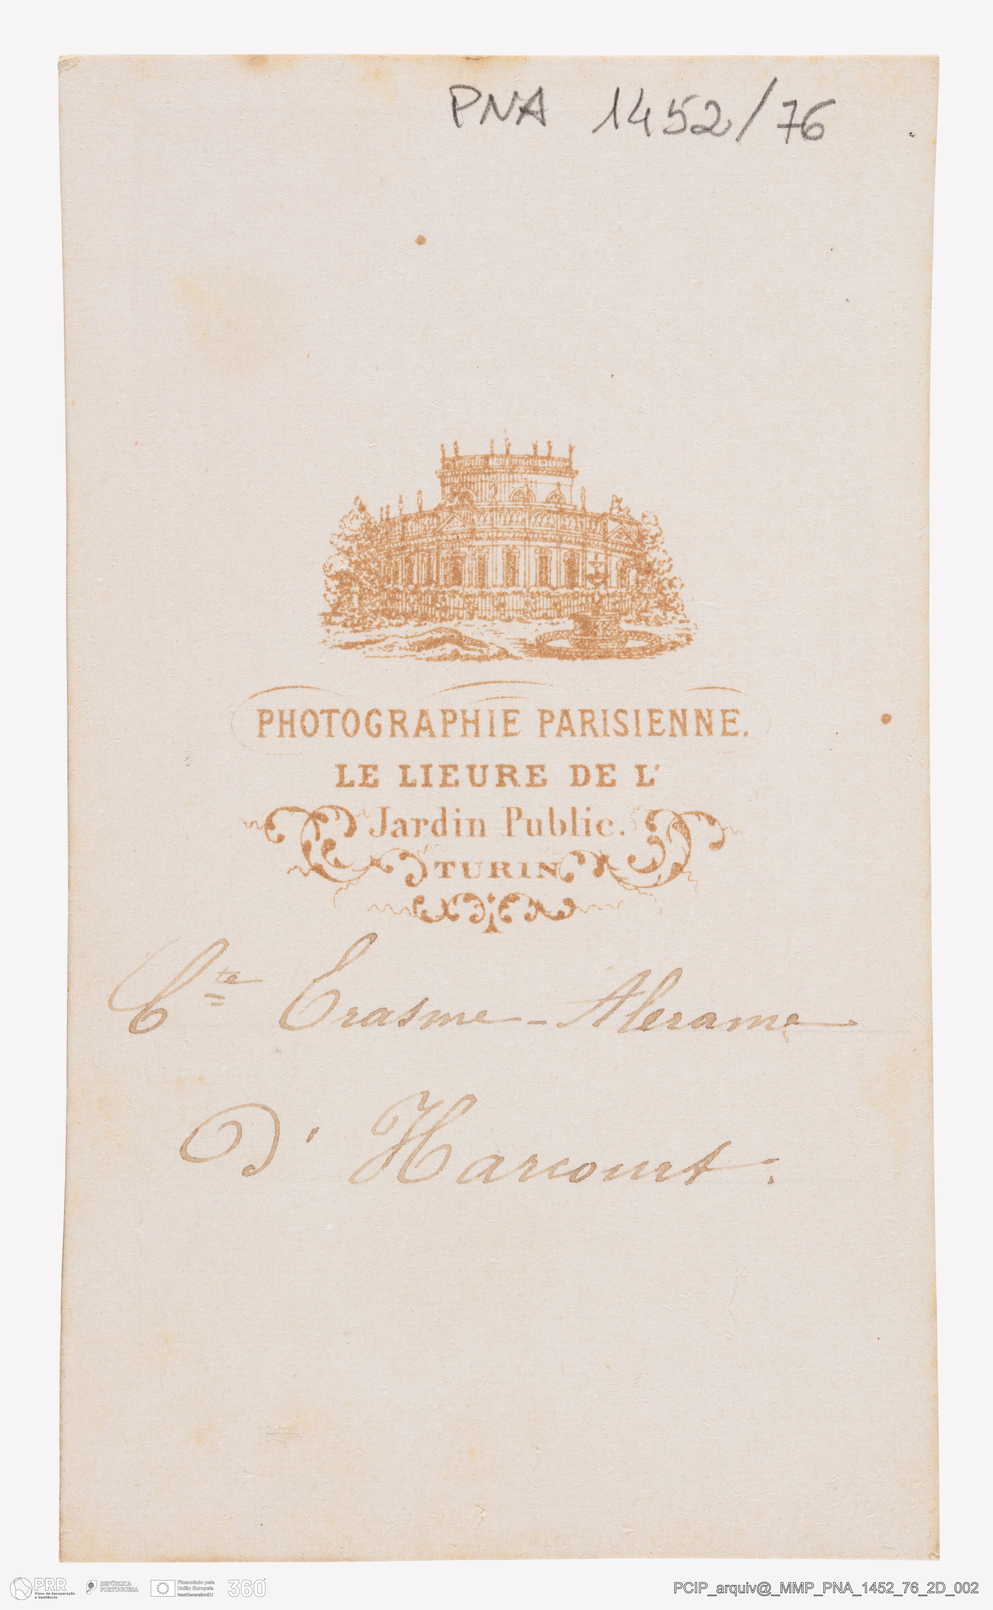 PNA 1452/76
PHOTOGRAPHIE PARISIENNE.
LE LIEURE DE L'
Jardin Public.
TURIN
Cte Erasme-Alerame
D'Harcourt.
PRR
Plano de Recuperação
e Resiliência
REPÚBLICA
PORTUGUESA
Financiado pela
União Europeia
NextGenerationEU
360°
PCIP_arquiv@_MMP_PNA_1452_76_2D_002